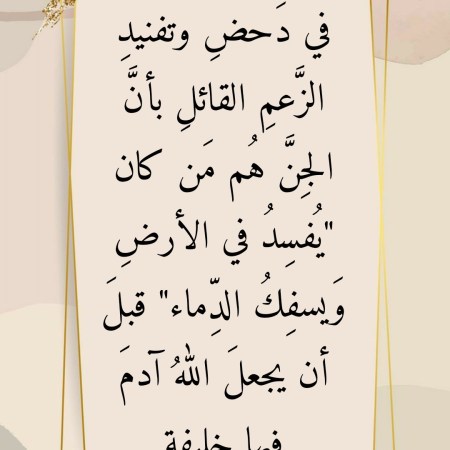 في دَحضِ وتفنيدِ
الزَّعمِ القائلِ بأنَّ
الجِنَّ هُم مَن كان
"يُفسِدُ في الأرضِ
وَيسفِكُ الدِّماء" قبلَ
أن يجعلَ اللهُ آدمَ
فيها خليفة